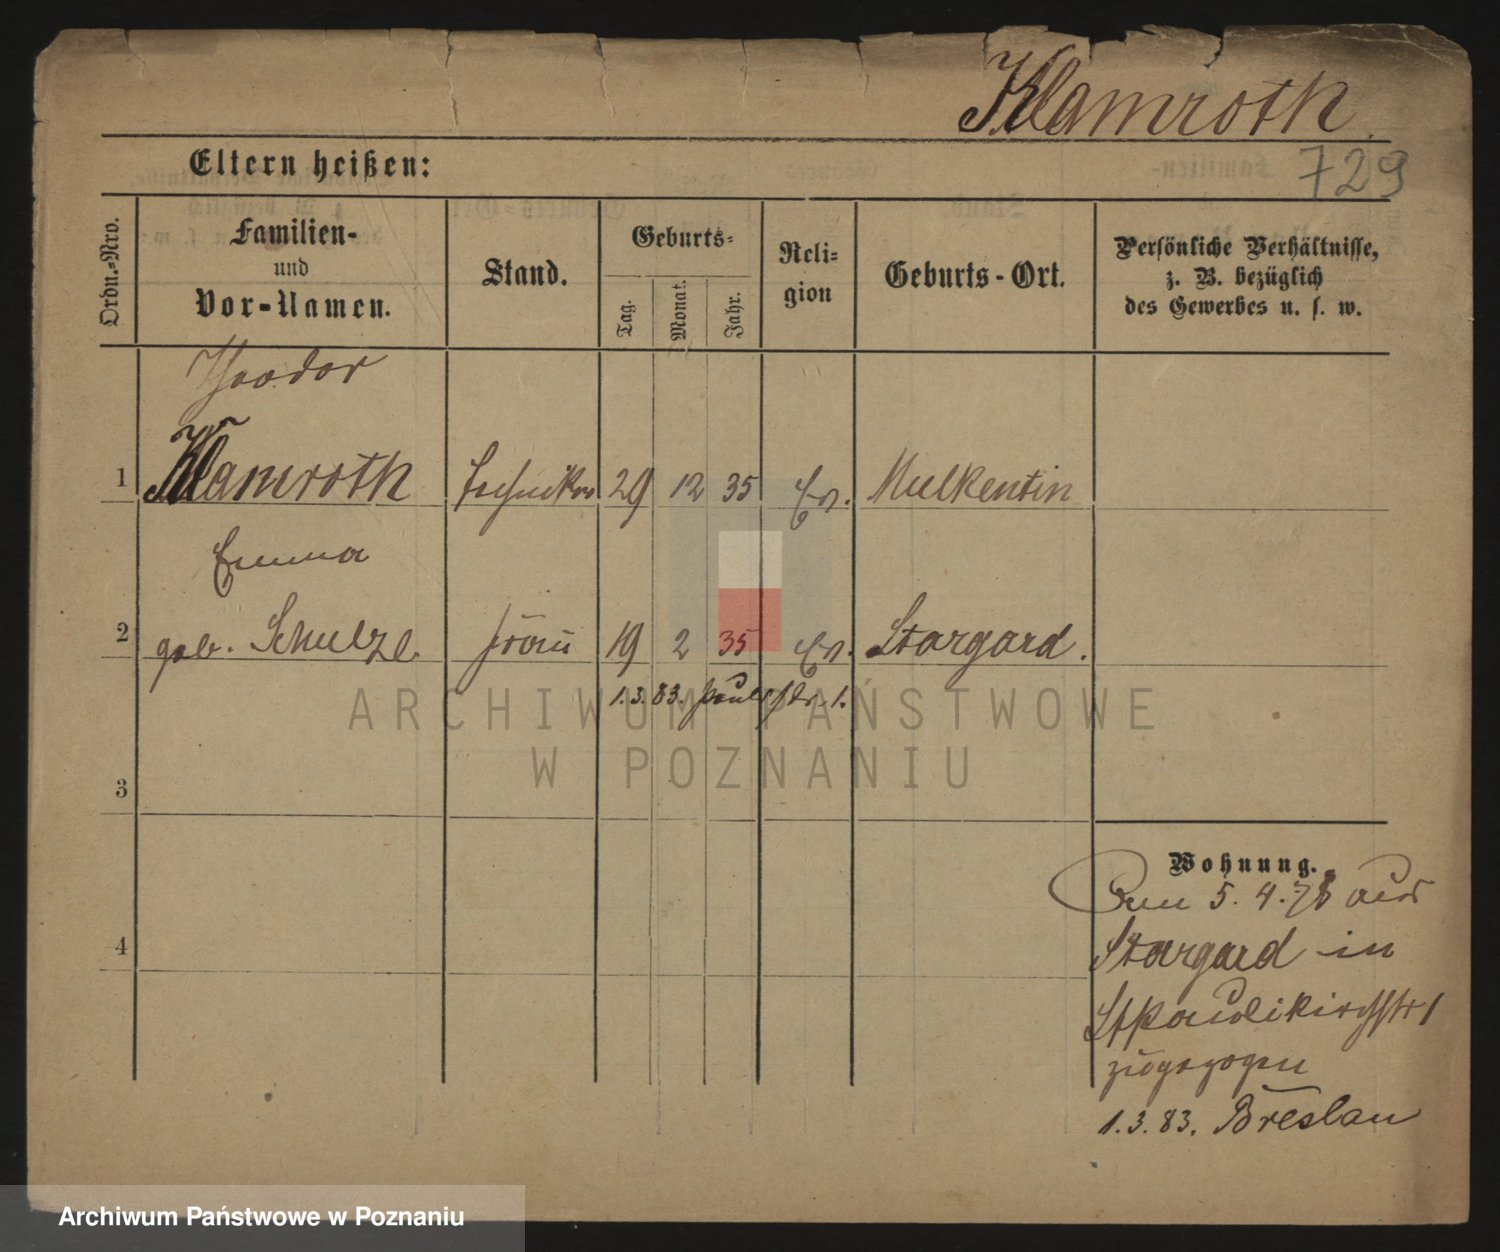 Klamroth
729
Eltern heißen:
Ordn.-Nro.
Familien-
und
Vor-Namen.
Stand.
Geburts-
Tag.
Monat.
Jahr.
Reli-
gion
Geburts-Ort.
Persönliche Verhältnisse,
z. B. bezüglich
des Gewerbes u. s. w.
Theodor
1 Klamroth Techniker 29 12 35 Ev. Mulkentin
Emma
2 geb. Schulze Frau 19 2 35 Ev. Stargard.
1.3.83. 1.
ARCHIWUM PAŃSTWOWE
W POZNANIU
3
4
Wohnung.
5. 4. 78 aus
Stargard in
St Paulikirchstr 1
zugezogen
1.3.83. Breslau
Archiwum Państwowe w Poznaniu